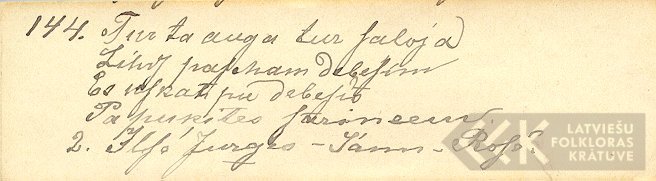 144. Tur ta auga tur saloja
Lihds pascham debesim
Es uskahpu debesis
Pa pukites sarineem.
2. Ilsó Jurgis – Jánu – Rosó?
LATVIEŠU
FOLKLORAS
KRĀTUVE